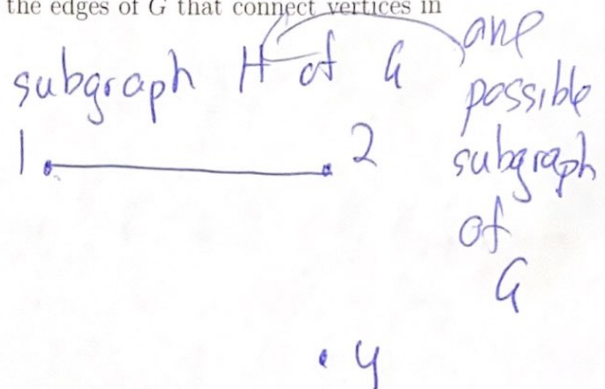 the edges of G that connect vertices in
subgraph H of G
one
possible
subgraph
of
G
1 2
4